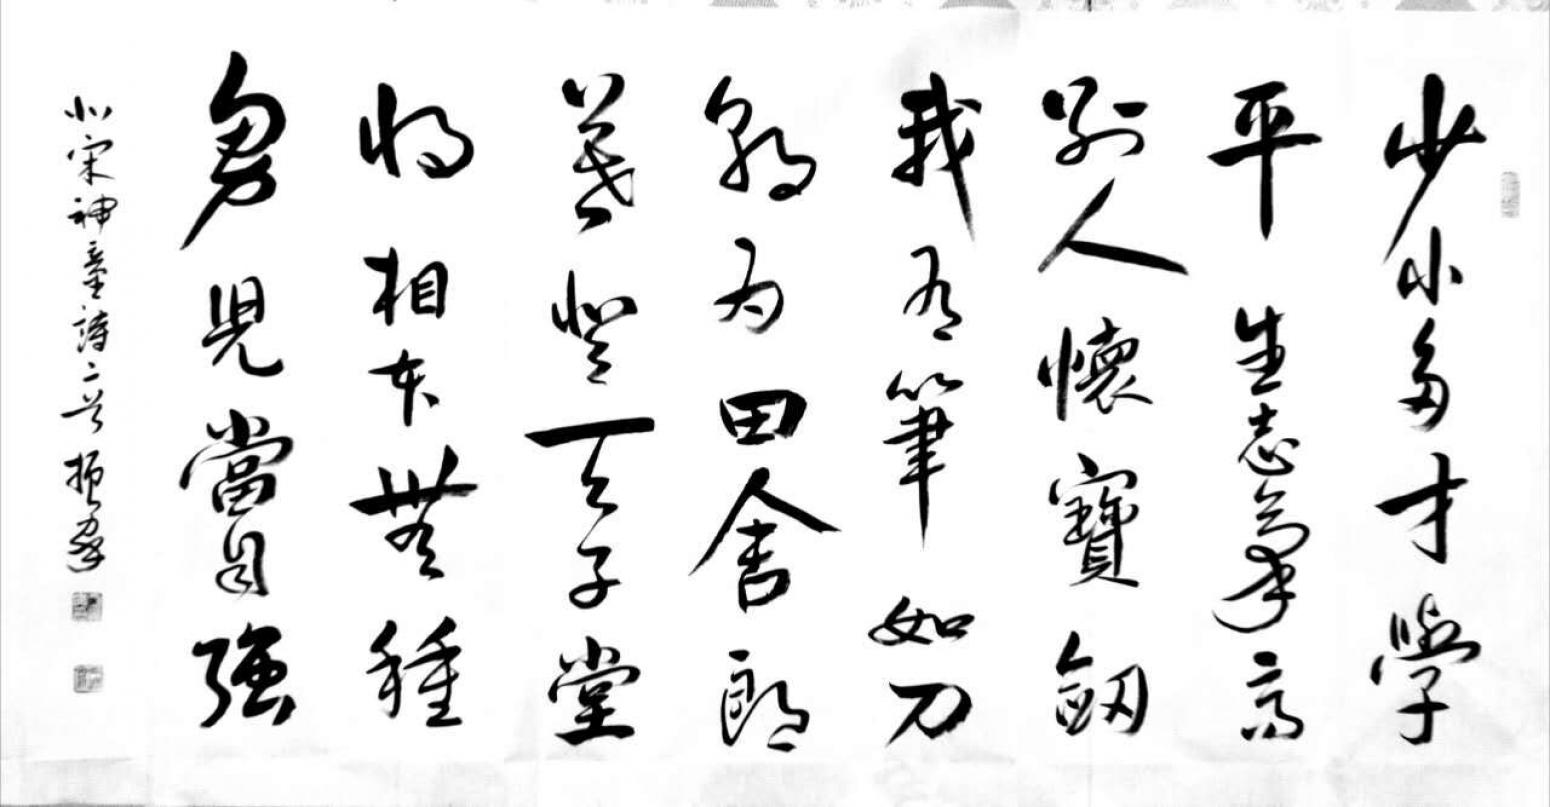 少小多才學
平生志氣高
別人懷寶劔
我有筆如刀
朝為田舍郎
暮登天子堂
將相本無種
男兒當自強
北宋神童詩二首 振